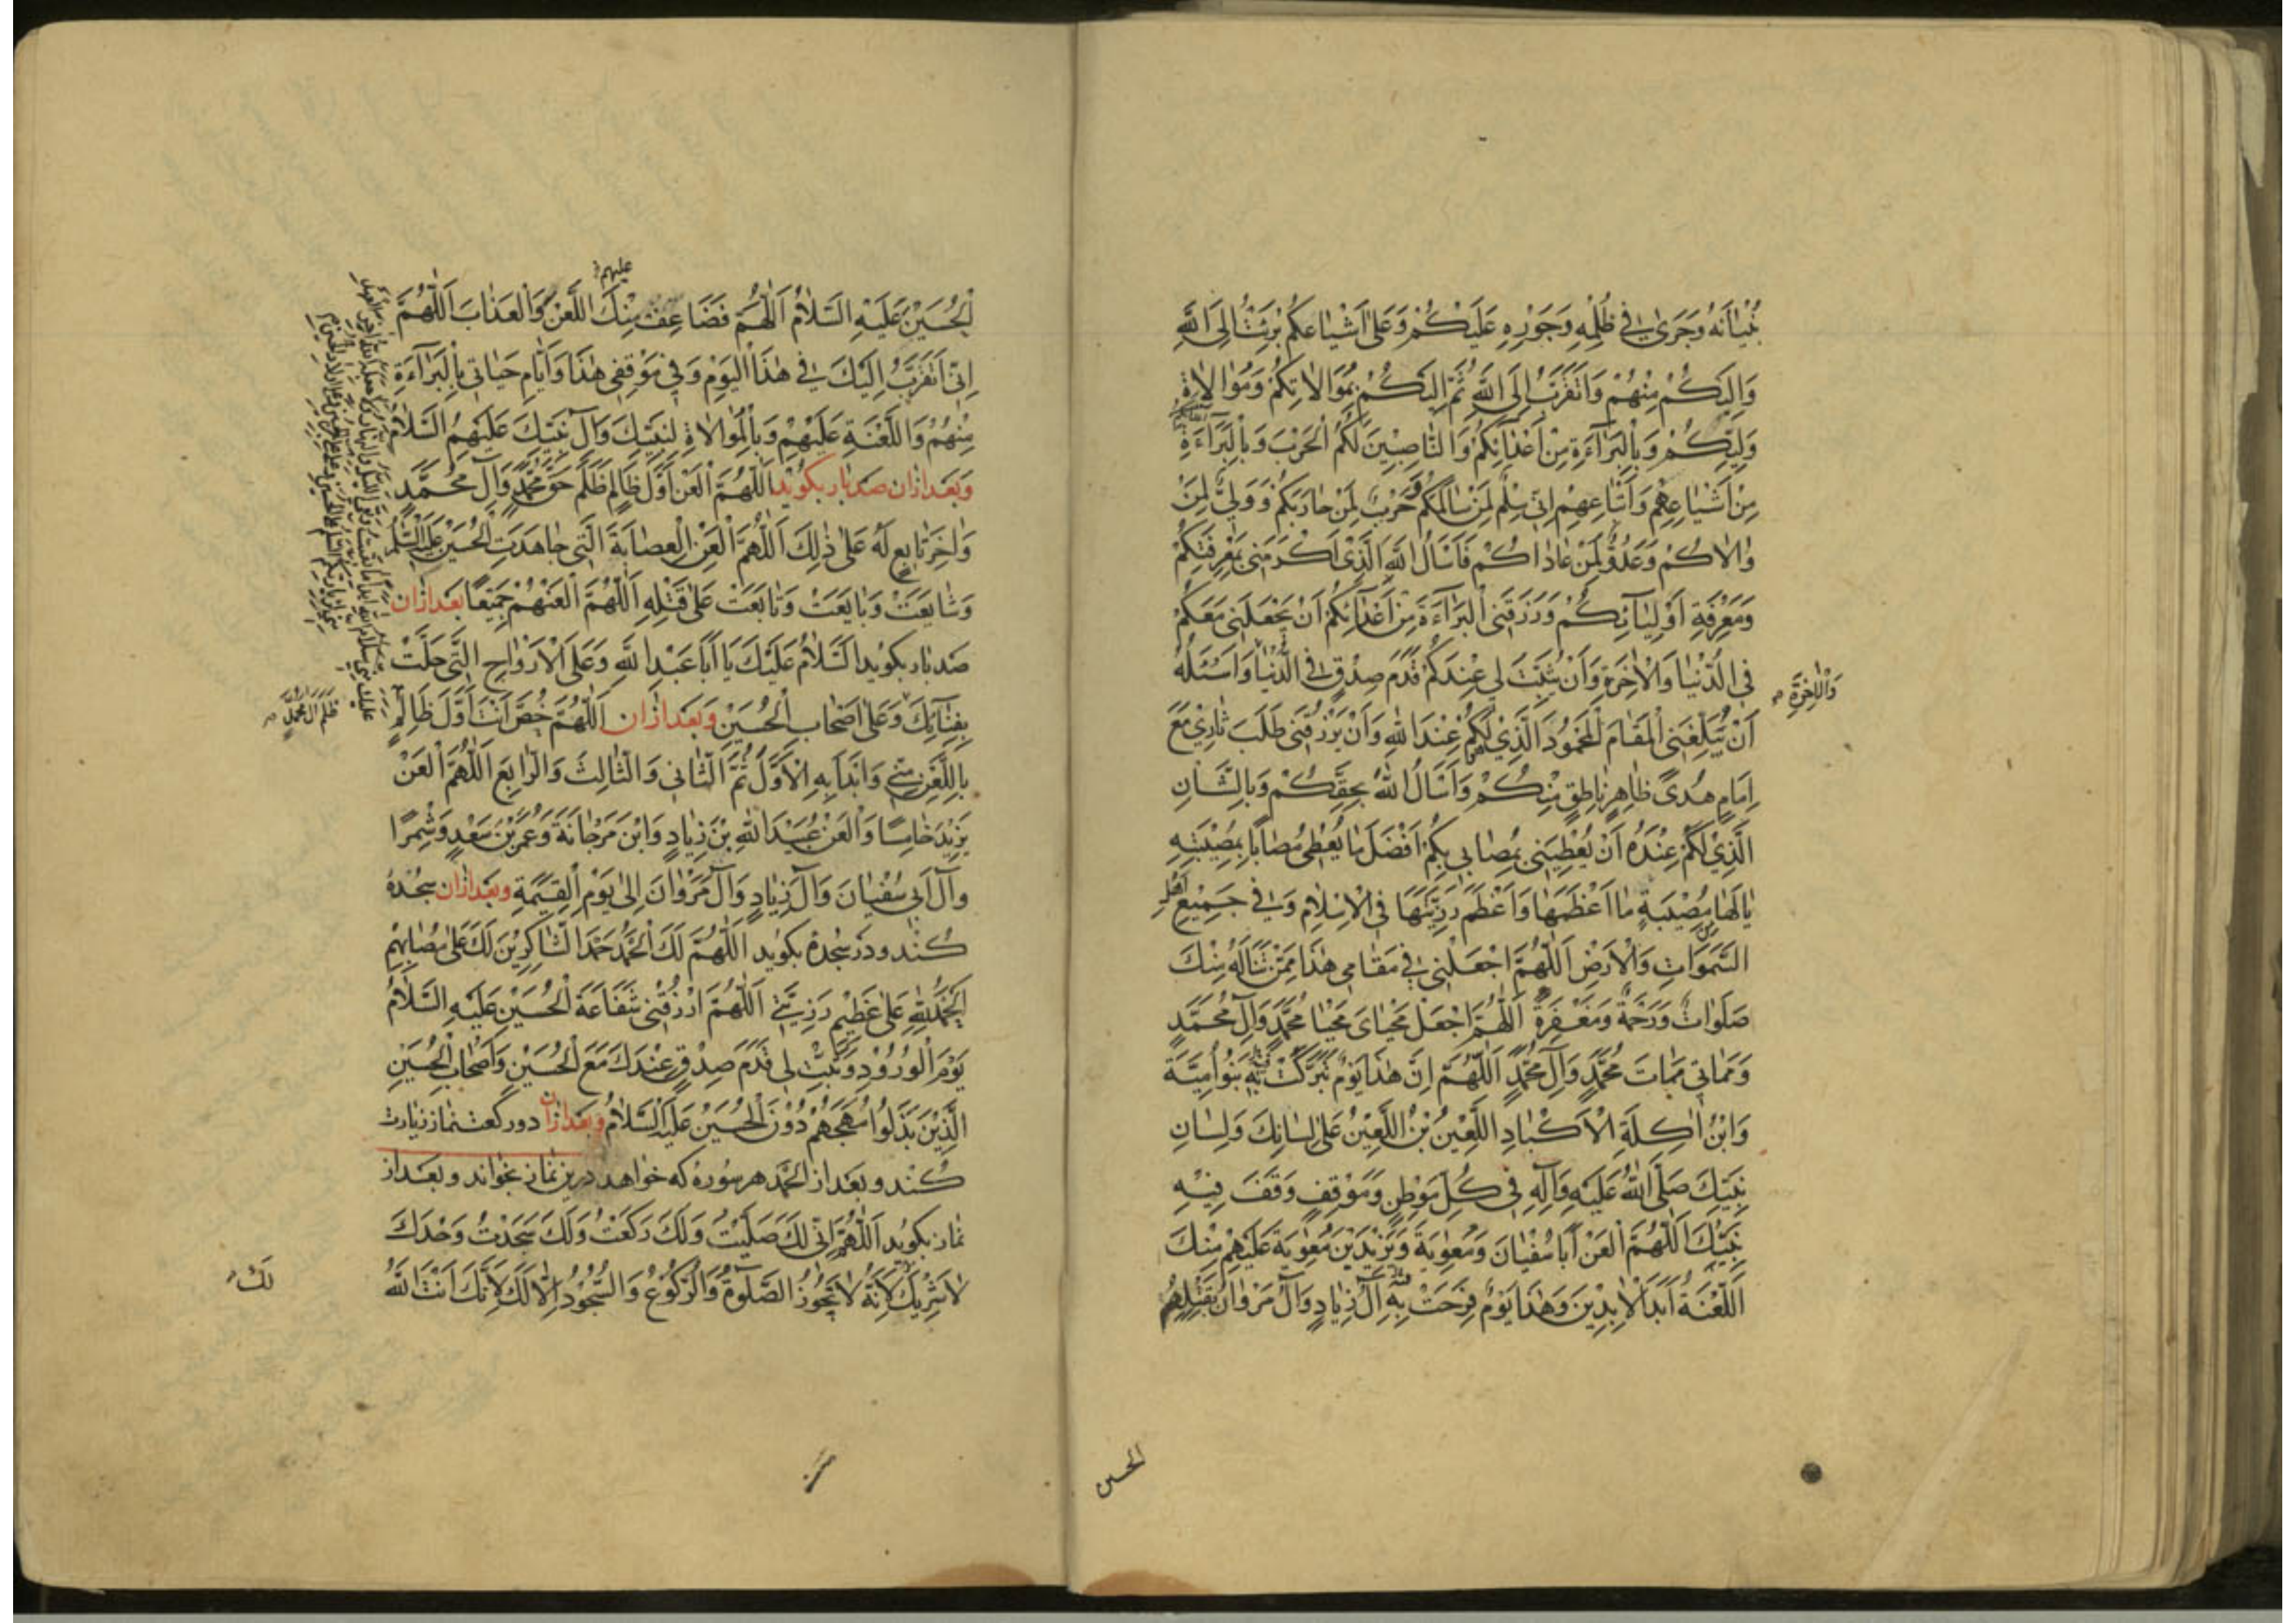 بُنْيٰانَهُ وَجَرىٰ فى ظُلْمِهِ وَجَوْرِهِ عَلَيْكُمْ وَعَلىٰ اَشْيٰاعِكُمْ بَرِئْتُ اِلَى اللهِ
وَاِلَيْكُمْ مِنْهُمْ وَاَتَقَرَّبُ اِلَى اللهِ ثُمَّ اِلَيْكُمْ بِمُوَالاتِكُمْ وَمُوٰالاةِ
وَلِيِّكُمْ وَبِالْبَرٰآءَةِ مِنْ اَعْدٰآئِكُمْ وَالنّٰاصِبِيْنَ لَكُمُ الْحَرْبَ وَبِالْبَرٰآءَةِ
مِنْ اَشْيٰاعِهِمْ وَاَتْبٰاعِهِمْ اِنّى سِلْمٌ لِمَنْ سٰالَمَكُمْ وَحَرْبٌ لِمَنْ حٰارَبَكُمْ وَوَلِىٌّ لِمَنْ
وٰالاكُمْ وَعَدُوٌّ لِمَنْ عٰادٰاكُمْ فَاَسْاَلُ اللهَ الَّذِىْ اَكْرَمَنى بِمَعْرِفَتِكُمْ
وَمَعْرِفَةِ اَوْلِيٰآئِكُمْ وَرَزَقَنِى الْبَرٰآءَةَ مِنْ اَعْدٰآئِكُمْ اَنْ يَجْعَلَنى مَعَكُمْ
فِى الدُّنْيٰا وَالْاٰخِرَةِ وَاَنْ يُثَبِّتَ لى عِنْدَكُمْ قَدَمَ صِدْقٍ فِى الدُّنْيٰا وَاَسْئَلُهُ
وَالْاٰخِرَةِ
اَنْ يُبَلِّغَنِى الْمَقٰامَ الْمَحْمُوْدَ الَّذِىْ لَكُمْ عِنْدَ اللهِ وَاَنْ يَرْزُقَنى طَلَبَ ثٰارِىْ مَعَ
اِمَامٍ هُدًى ظٰاهِرٍ نٰاطِقٍ مِنْكُمْ وَاَسْاَلُ اللهَ بِحَقِّكُمْ وَبِالشَّانِ
الَّذِىْ لَكُمْ عِنْدَهُ اَنْ يُعْطِيَنى بِمُصٰابى بِكُمْ اَفْضَلَ مٰا يُعْطى مُصٰابًا بِمُصِيْبَتِهِ
يٰا لَهٰا مُصِيْبَةٍ مٰا اَعْظَمَهٰا وَاَعْظَمَ رَزِيَّتَهٰا فِى الْاِسْلٰامِ وَفى جَمِيْعِ اَهْلِ
السَّمَوَاتِ وَالْاَرْضِ اَللّٰهُمَّ اجْعَلْنى فى مَقٰامى هٰذَا مِمَّنْ تَنَالُهُ مِنْكَ
صَلَوَاتٌ وَرَحْمَةٌ وَمَغْفِرَةٌ اَللّٰهُمَّ اجْعَلْ مَحْيٰاىَ مَحْيٰا مُحَمَّدٍ وَاٰلِ مُحَمَّدٍ
وَمَمٰاتى مَمٰاتَ مُحَمَّدٍ وَاٰلِ مُحَمَّدٍ اَللّٰهُمَّ اِنَّ هٰذَا يَوْمٌ تَبَرَّكَتْ بِهِ بَنُوْ اُمَيَّةَ
وَابْنُ اٰكِلَةِ الْاَكْبٰادِ اللَّعِيْنُ بْنُ اللَّعِيْنِ عَلىٰ لِسٰانِكَ وَلِسٰانِ
نَبِيِّكَ صَلَّى اللهُ عَلَيْهِ وَاٰلِهِ فى كُلِّ مَوْطِنٍ وَمَوْقِفٍ وَقَفَ فِيْهِ
نَبِيُّكَ اَللّٰهُمَّ الْعَنْ اَبٰا سُفْيٰانَ وَمُعٰوِيَةَ وَيَزِيْدَ بْنَ مُعٰوِيَةَ عَلَيْهِمْ مِنْكَ
اللَّعْنَةُ اَبَدَ الْاٰبِدِيْنَ وَهٰذَا يَوْمٌ فَرِحَتْ بِهِ اٰلُ زِيٰادٍ وَاٰلُ مَرْوٰانَ بِقَتْلِهِمُ
الحسين
عليهم
الْحُسَيْنَ عَلَيْهِ السَّلاٰمُ اَللّٰهُمَّ فَضَاعِفْ مِنْكَ اللَّعْنَ وَالْعَذٰابَ اَللّٰهُمَّ
اِنّى اَتَقَرَّبُ اِلَيْكَ فى هٰذَا الْيَوْمِ وَفى مَوْقِفى هٰذَا وَاَيّٰامِ حَيٰاتى بِالْبَرٰآءَةِ
مِنْهُمْ وَاللَّعْنَةِ عَلَيْهِمْ وَبِالْمُوٰالاةِ لِنَبِيِّكَ وَاٰلِ نَبِيِّكَ عَلَيْهِمُ السَّلاٰمُ
وَبَعْدَ ازان صَدبار بكويد اَللّٰهُمَّ الْعَنْ اَوَّلَ ظٰالِمٍ ظَلَمَ حَقَّ مُحَمَّدٍ وَاٰلِ مُحَمَّدٍ
وَاٰخِرَ تٰابِعٍ لَهُ عَلىٰ ذٰلِكَ اَللّٰهُمَّ الْعَنِ الْعِصٰابَةَ الَّتى جٰاهَدَتِ الْحُسَيْنَ عَلَيْهِ السَّلٰمُ
وَشٰايَعَتْ وَبٰايَعَتْ وَتٰابَعَتْ عَلىٰ قَتْلِهِ اَللّٰهُمَّ الْعَنْهُمْ جَمِيْعًا بعد ازان
صَدبار بكويد اَلسَّلاٰمُ عَلَيْكَ يٰا اَبٰا عَبْدِ اللهِ وَعَلَى الْاَرْوٰاحِ الَّتى حَلَّتْ
بِفِنٰآئِكَ وَعَلىٰ اَصْحٰابِ الْحُسَيْنِ وَبَعد ازان اَللّٰهُمَّ خُصَّ اَنْتَ اَوَّلَ ظٰالِمٍ
ظَلَمَ اٰلَ مُحَمَّدٍ
بِاللَّعْنِ مِنّى وَابْدَاْ بِهِ الْاَوَّلَ ثُمَّ الثّٰانى وَالثّٰالِثَ وَالرّٰابِعَ اَللّٰهُمَّ الْعَنْ
يَزِيْدَ خٰامِسًا وَالْعَنْ عُبَيْدَ اللهِ بْنَ زِيٰادٍ وَابْنَ مَرْجٰانَةَ وَعُمَرَ بْنَ سَعْدٍ وَشِمْرًا
وَاٰلَ اَبى سُفْيٰانَ وَاٰلَ زِيٰادٍ وَاٰلَ مَرْوٰانَ اِلىٰ يَوْمِ الْقِيٰمَةِ وبعد ازان سجده
كُنَد و در سجده بكويد اَللّٰهُمَّ لَكَ الْحَمْدُ حَمْدَ الشّٰاكِرِيْنَ لَكَ عَلىٰ مُصٰابِهِمْ
اَلْحَمْدُ لِلّٰهِ عَلىٰ عَظِيْمِ رَزِيَّتى اَللّٰهُمَّ ارْزُقْنى شَفٰاعَةَ الْحُسَيْنِ عَلَيْهِ السَّلاٰمُ
يَوْمَ الْوُرُوْدِ وَثَبِّتْ لى قَدَمَ صِدْقٍ عِنْدَكَ مَعَ الْحُسَيْنِ وَاَصْحٰابِ الْحُسَيْنِ
الَّذِيْنَ بَذَلُوْا مُهَجَهُمْ دُوْنَ الْحُسَيْنِ عَلَيْهِ السَّلاٰمُ وبعد ازان دو ركعت نماز زيارت
كُنَد و بعد از الحمد هر سوره كه خواهد درين نماز بخواند و بعد از
نماز بكويد اَللّٰهُمَّ اِنّى لَكَ صَلَّيْتُ وَلَكَ رَكَعْتُ وَلَكَ سَجَدْتُ وَحْدَكَ
لاٰ شَرِيْكَ لَكَ لِاَنَّهُ لاٰ تَجُوْزُ الصَّلٰوةُ وَالرُّكُوْعُ وَالسُّجُوْدُ اِلّٰا لَكَ لِاَنَّكَ اَنْتَ اللهُ
لَكَ